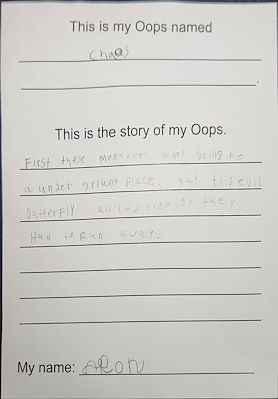 This is my Oops named
Chaos
This is the story of my Oops.
First these monsters wher going to
a under grouns place. But this evil
Butterfly so they
Had to Run away.
My name: ARON